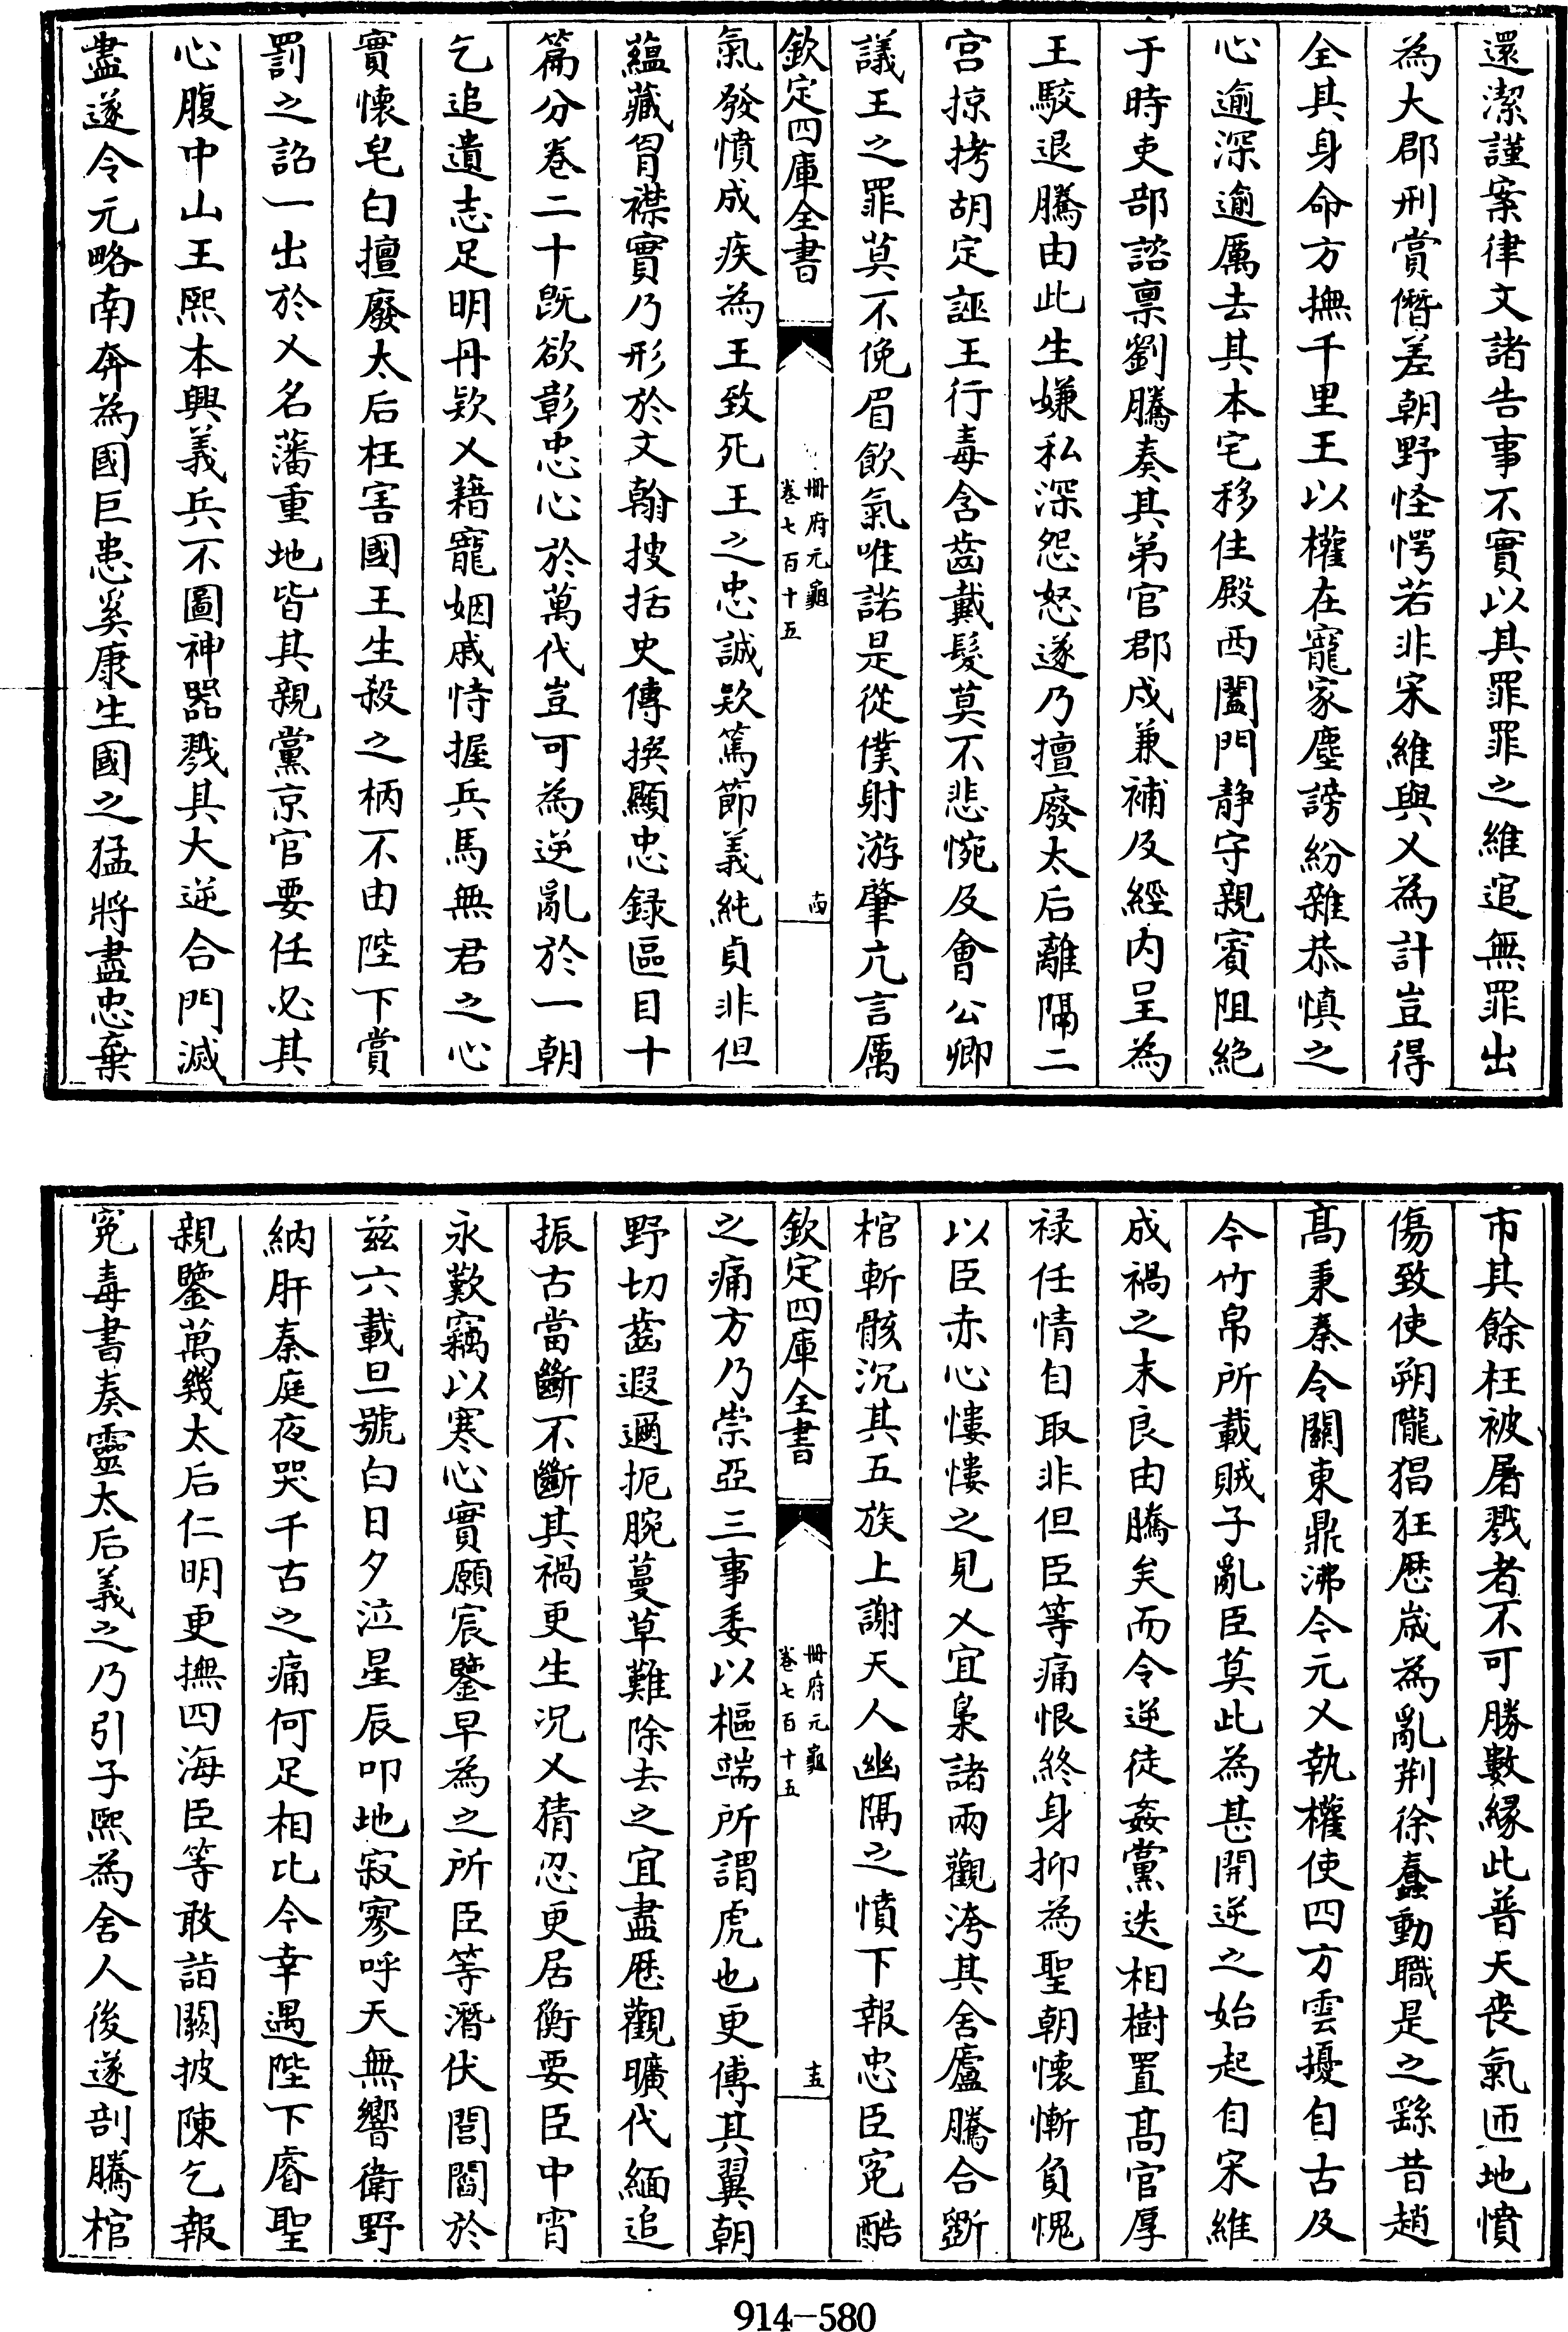 還潔謹案律文諸告事不實以其罪罪之維追無罪出
為大郡刑賞僭差朝野怪愕若非宋維與乂為計豈得
全其身命方撫千里王以權在寵家塵謗紛雜恭慎之
心逾深逾厲去其本宅移住殿西闔門静守親賓阻絶
于時吏部諮禀劉騰奏其弟官郡戍兼補及經内呈為
王駮退騰由此生嫌私深怨怒遂乃擅廢太后離隔二
宫掠拷胡定誣王行毒含齒戴髮莫不悲惋及會公卿
議王之罪莫不俛眉飲氣唯諾是從僕射游肇亢言厲
欽定四庫全書
冊府元龜
卷七百十五
氣發憤成疾為王致死王之忠誠欵篤節義純貞非但
藴藏胷襟實乃形於文翰搜括史傳撰顯忠録區目十
篇分卷二十既欲彰忠心於萬代豈可為逆亂於一朝
乞追遺志足明丹欵乂藉寵姻戚恃握兵馬無君之心
實懐皂白擅廢太后枉害國王生殺之柄不由陛下賞
罰之詔一出於乂名藩重地皆其親黨京官要任必其
心腹中山王熙本興義兵不圖神器戮其大逆合門滅
盡遂令元略南奔為國巨患奚康生國之猛將盡忠棄
市其餘枉被屠戮者不可勝數縁此普天喪氣匝地憤
傷致使朔隴猖狂厯歳為亂荆徐蠢動職是之繇昔趙
髙秉秦令關東鼎沸今元乂執權使四方雲擾自古及
今竹帛所載賊子亂臣莫此為甚開逆之始起自宋維
成禍之末良由騰矣而令逆徒姦黨迭相樹置髙官厚
禄任情自取非但臣等痛恨終身抑為聖朝懐慚負愧
以臣赤心慺慺之見乂宜梟諸兩觀洿其舍廬騰合斵
棺斬骸沉其五族上謝天人幽隔之憤下報忠臣寃酷
欽定四庫全書
冊府元龜
卷七百十五
之痛方乃崇亞三事委以樞端所謂虎也更傅其翼朝
野切齒遐邇扼腕蔓草難除去之宜盡厯觀曠代緬追
振古當斷不斷其禍更生况乂猜忍更居衡要臣中宵
永歎竊以寒心實願宸鑒早為之所臣等潛伏閭閻於
兹六載旦號白日夕泣星辰叩地寂寥呼天無響衛野
納肝秦庭夜哭千古之痛何足相比今幸遇陛下睿聖
親鑒萬幾太后仁明更撫四海臣等敢詣闕披陳乞報
寃毒書奏靈太后義之乃引子熙為舍人後遂剖騰棺
914-580